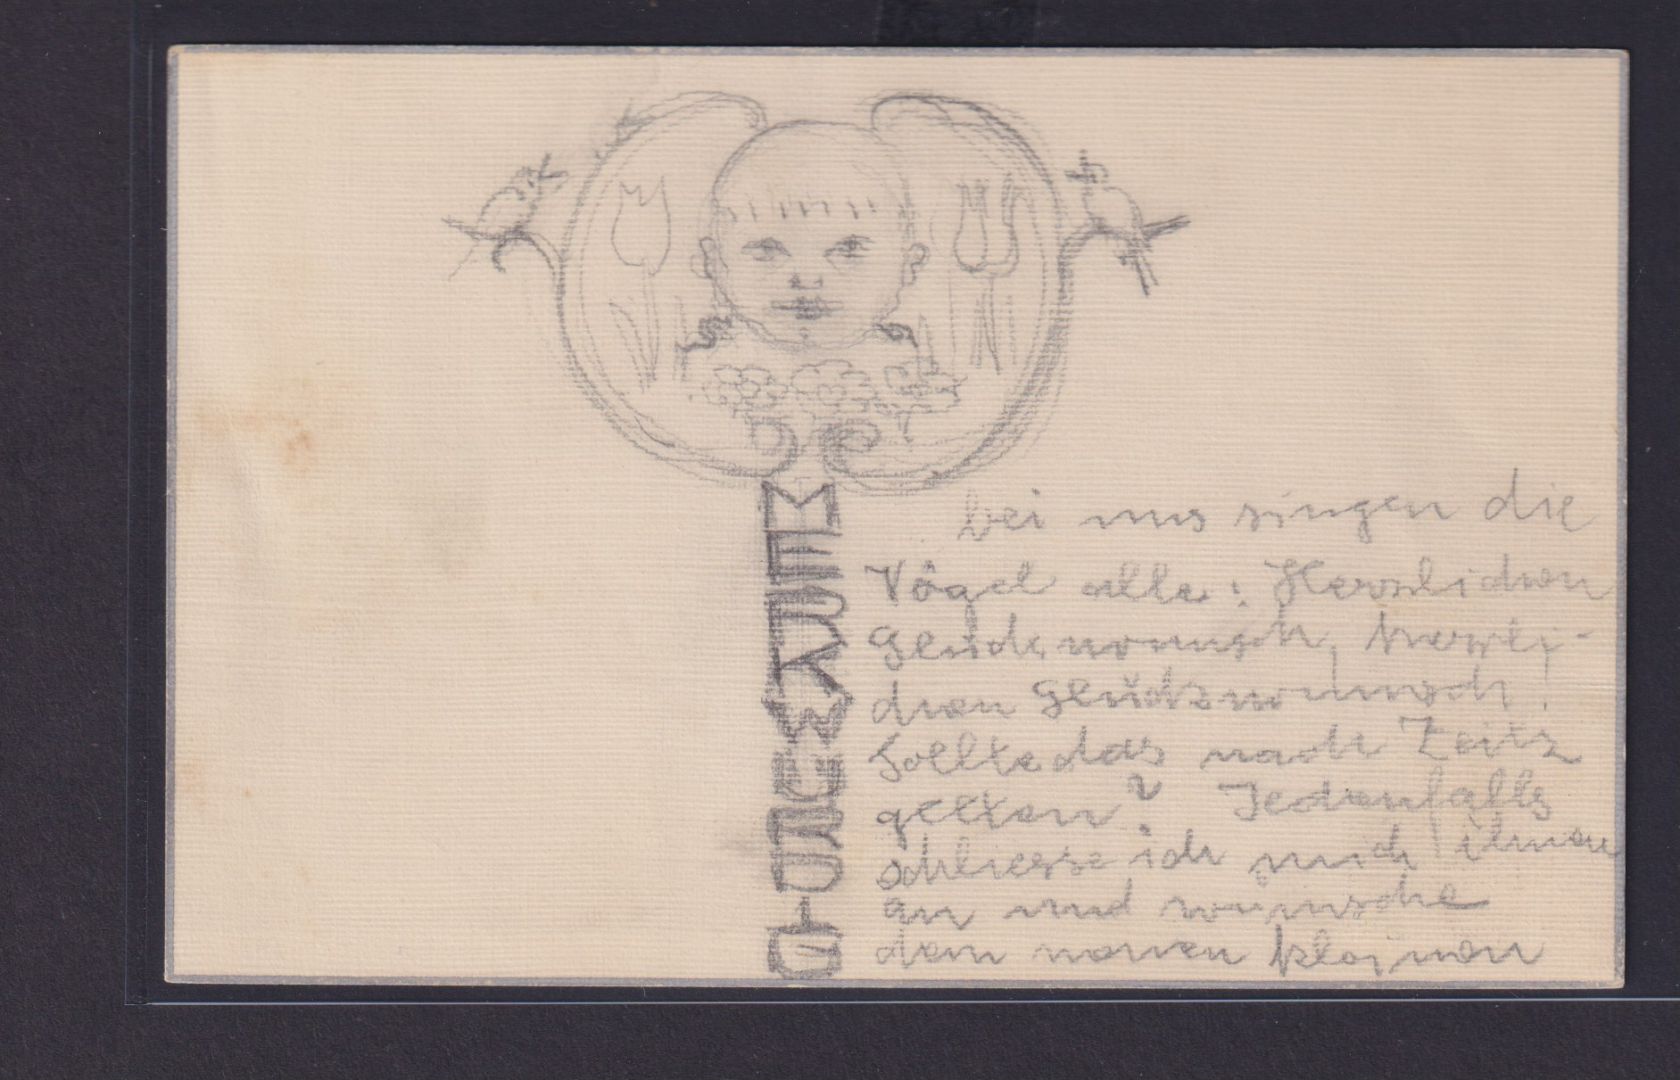 bei uns singen die
Vögel alle: Herzlichen
Glückwunsch, herzli-
chen Glückwunsch!
Sollte das nach Zeitz
gelten? Jedenfalls
schliesse ich mich ihnen
an und wünsche
dem neuen kleinen